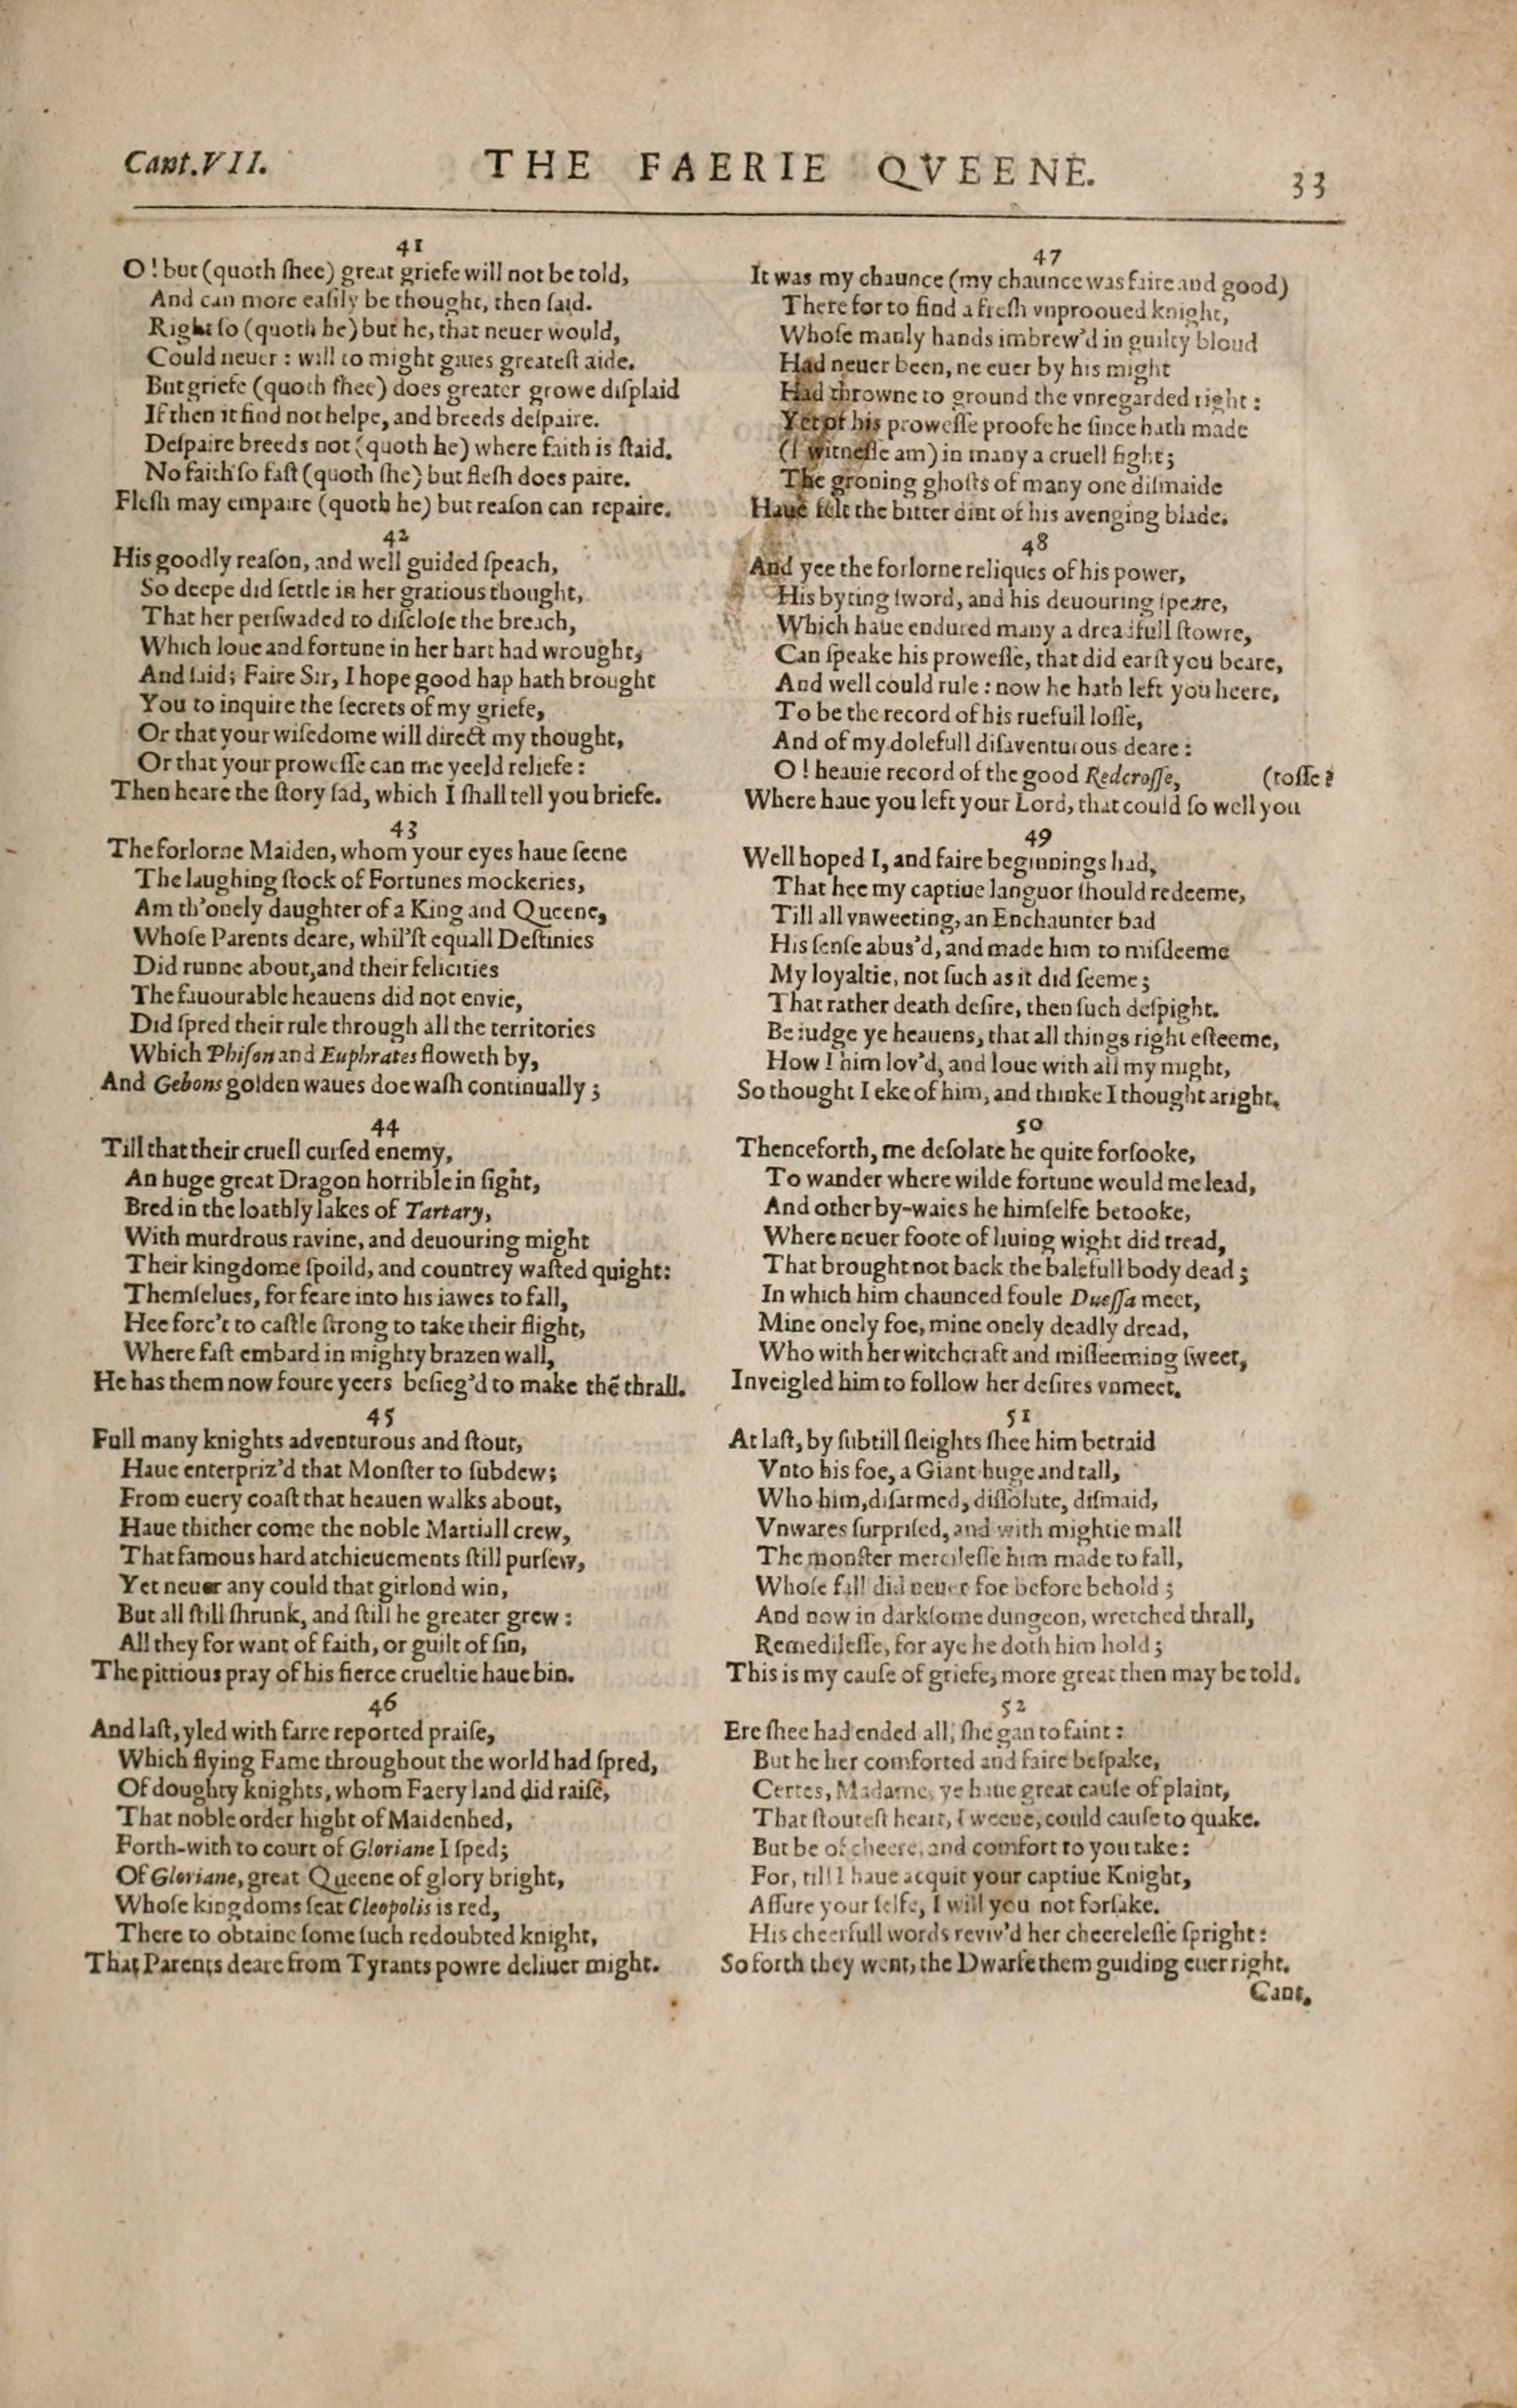 Cant.VII. THE FAERIE QVEENE. 33
41
O! but (quoth ſhee) great griefe will not be told,
And can more eaſily be thought, then ſaid.
Right ſo (quoth he) but he, that neuer would,
Could neuer: will to might giues greateſt aide.
But griefe (quoth ſhee) does greater growe diſplaid
If then it find not helpe, and breeds deſpaire.
Deſpaire breeds not (quoth he) where faith is ſtaid.
No faith ſo faſt (quoth ſhe) but fleſh does paire.
Fleſh may empaire (quoth he) but reaſon can repaire.
42
His goodly reaſon, and well guided ſpeach,
So deepe did ſettle in her gratious thought,
That her perſwaded to diſcloſe the breach,
Which loue and fortune in her hart had wrought,
And ſaid; Faire Sir, I hope good hap hath brought
You to inquire the ſecrets of my griefe,
Or that your wiſedome will direct my thought,
Or that your proweſſe can me yeeld reliefe:
Then heare the ſtory ſad, which I ſhall tell you briefe.
43
The forlorne Maiden, whom your eyes haue ſeene
The laughing ſtock of Fortunes mockeries,
Am th'onely daughter of a King and Queene,
Whoſe Parents deare, whil'ſt equall Deſtinies
Did runne about, and their felicities
The fauourable heauens did not envie,
Did ſpred their rule through all the territories
Which Phiſon and Euphrates floweth by,
And Gehons golden waues doe waſh continually;
44
Till that their cruell curſed enemy,
An huge great Dragon horrible in ſight,
Bred in the loathly lakes of Tartary,
With murdrous ravine, and deuouring might
Their kingdome ſpoild, and countrey waſted quight:
Themſelues, for feare into his iawes to fall,
Hee forc't to caſtle ſtrong to take their flight,
Where faſt embard in mighty brazen wall,
He has them now foure yeers beſieg'd to make thē thrall.
45
Full many knights adventurous and ſtout,
Haue enterpriz'd that Monſter to ſubdew;
From euery coaſt that heauen walks about,
Haue thither come the noble Martiall crew,
That famous hard atchieuements ſtill purſew,
Yet neuer any could that girlond win,
But all ſtill ſhrunk, and ſtill he greater grew:
All they for want of faith, or guilt of ſin,
The pittious pray of his fierce crueltie haue bin.
46
And laſt, yled with farre reported praiſe,
Which flying Fame throughout the world had ſpred,
Of doughty knights, whom Faery land did raiſe,
That noble order hight of Maidenhed,
Forth-with to court of Gloriane I ſped;
Of Gloriane, great Queene of glory bright,
Whoſe kingdoms ſeat Cleopolis is red,
There to obtaine ſome ſuch redoubted knight,
That Parents deare from Tyrants powre deliuer might.
47
It was my chaunce (my chaunce was faire and good)
There for to find a freſh vnprooued knight,
Whoſe manly hands imbrew'd in guilty bloud
Had neuer been, ne euer by his might
Had throwne to ground the vnregarded right:
Yet of his proweſſe proofe he ſince hath made
(I witneſſe am) in many a cruell fight;
The groning ghoſts of many one diſmaide
Haue felt the bitter dint of his avenging blade.
48
And yee the forlorne reliques of his power,
His byting ſword, and his deuouring ſpeare,
Which haue endured many a dreadfull ſtowre,
Can ſpeake his proweſſe, that did earſt you beare,
And well could rule: now he hath left you heere,
To be the record of his ruefull loſſe,
And of my dolefull diſaventurous deare:
O! heauie record of the good Redcroſſe, (toſſe?
Where haue you left your Lord, that could ſo well you
49
Well hoped I, and faire beginnings had,
That hee my captiue languor ſhould redeeme,
Till all vnweeting, an Enchaunter bad
His ſenſe abus'd, and made him to miſdeeme
My loyaltie, not ſuch as it did ſeeme;
That rather death deſire, then ſuch deſpight.
Be iudge ye heauens, that all things right eſteeme,
How I him lov'd, and loue with all my might,
So thought I eke of him, and thinke I thought aright.
50
Thenceforth, me deſolate he quite forſooke,
To wander where wilde fortune would me lead,
And other by-waies he himſelfe betooke,
Where neuer foote of liuing wight did tread,
That brought not back the balefull body dead;
In which him chaunced foule Dueſſa meet,
Mine onely foe, mine onely deadly dread,
Who with her witchcraft and miſſeeming ſweet,
Inveigled him to follow her deſires vnmeet.
51
At laſt, by ſubtill ſleights ſhee him betraid
Vnto his foe, a Giant huge and tall,
Who him, diſarmed, diſſolute, diſmaid,
Vnwares ſurpriſed, and with mightie mall
The monſter mercileſſe him made to fall,
Whoſe fall did neuer foe before behold;
And now in darkſome dungeon, wretched thrall,
Remedileſſe, for aye he doth him hold;
This is my cauſe of griefe, more great then may be told.
52
Ere ſhee had ended all, ſhe gan to faint:
But he her comforted and faire beſpake,
Certes, Madame, ye haue great cauſe of plaint,
That ſtouteſt heart, I weene, could cauſe to quake.
But be of cheere, and comfort to you take:
For, till I haue acquit your captiue Knight,
Aſſure your ſelfe, I will you not forſake.
His cheerfull words reviv'd her cheereleſſe ſpright:
So forth they went, the Dwarfe them guiding euer right.
Cant.